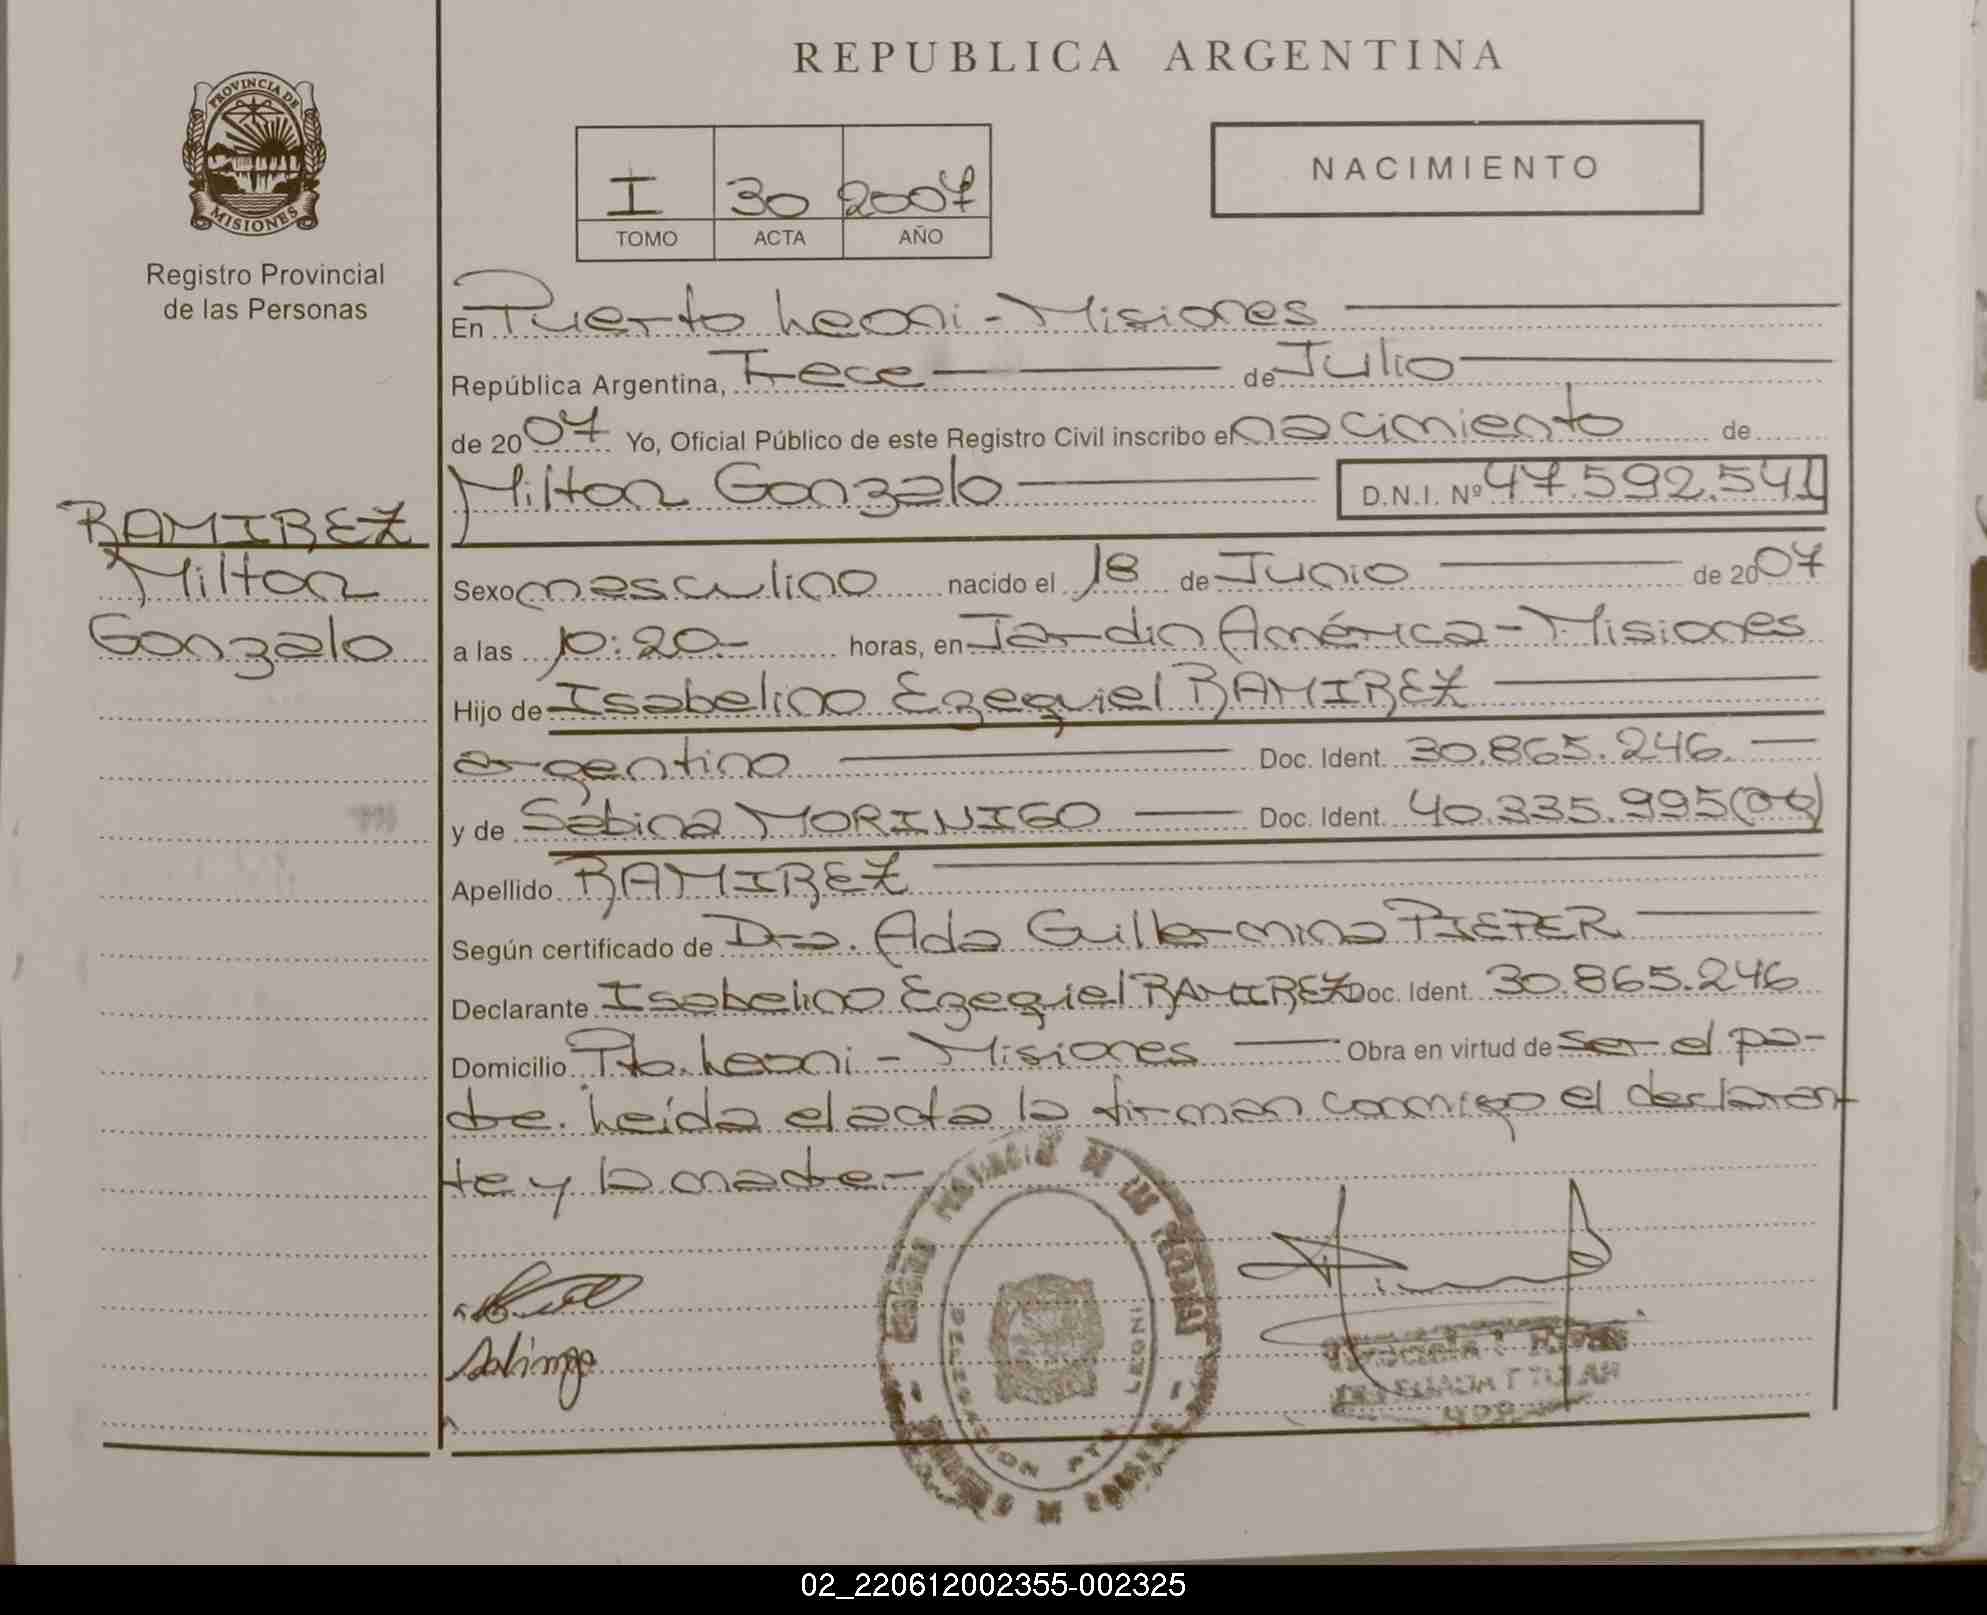 REPUBLICA ARGENTINA
PROVINCIA DE
MISIONES
Registro Provincial
de las Personas
I 30 2007
TOMO ACTA AÑO
NACIMIENTO
En Puerto Leoni - Misiones
República Argentina, Trece de Julio
de 2007 Yo, Oficial Público de este Registro Civil inscribo el nacimiento de
Milton Gonzalo D.N.I. Nº 47.592.541
RAMIREZ
Milton
Gonzalo
Sexo masculino nacido el 18 de Junio de 2007
a las 10:20.- horas, en Jardin América - Misiones
Hijo de Isabelino Ezequiel RAMIREZ
argentino Doc. Ident. 30.865.246.
y de Sabina MORINIGO Doc. Ident. 40.335.995
Apellido RAMIREZ
Según certificado de Dra. Ada Guillermina PIEPER
Declarante Isabelino Ezequiel RAMIREZ Doc. Ident. 30.865.246
Domicilio Pto. Leoni - Misiones Obra en virtud de ser el pa-
dre. Leída el acta la firman conmigo el declaran
te y la madre-
DELEGACION PTO LEONI
TITULAR
02_220612002355-002325